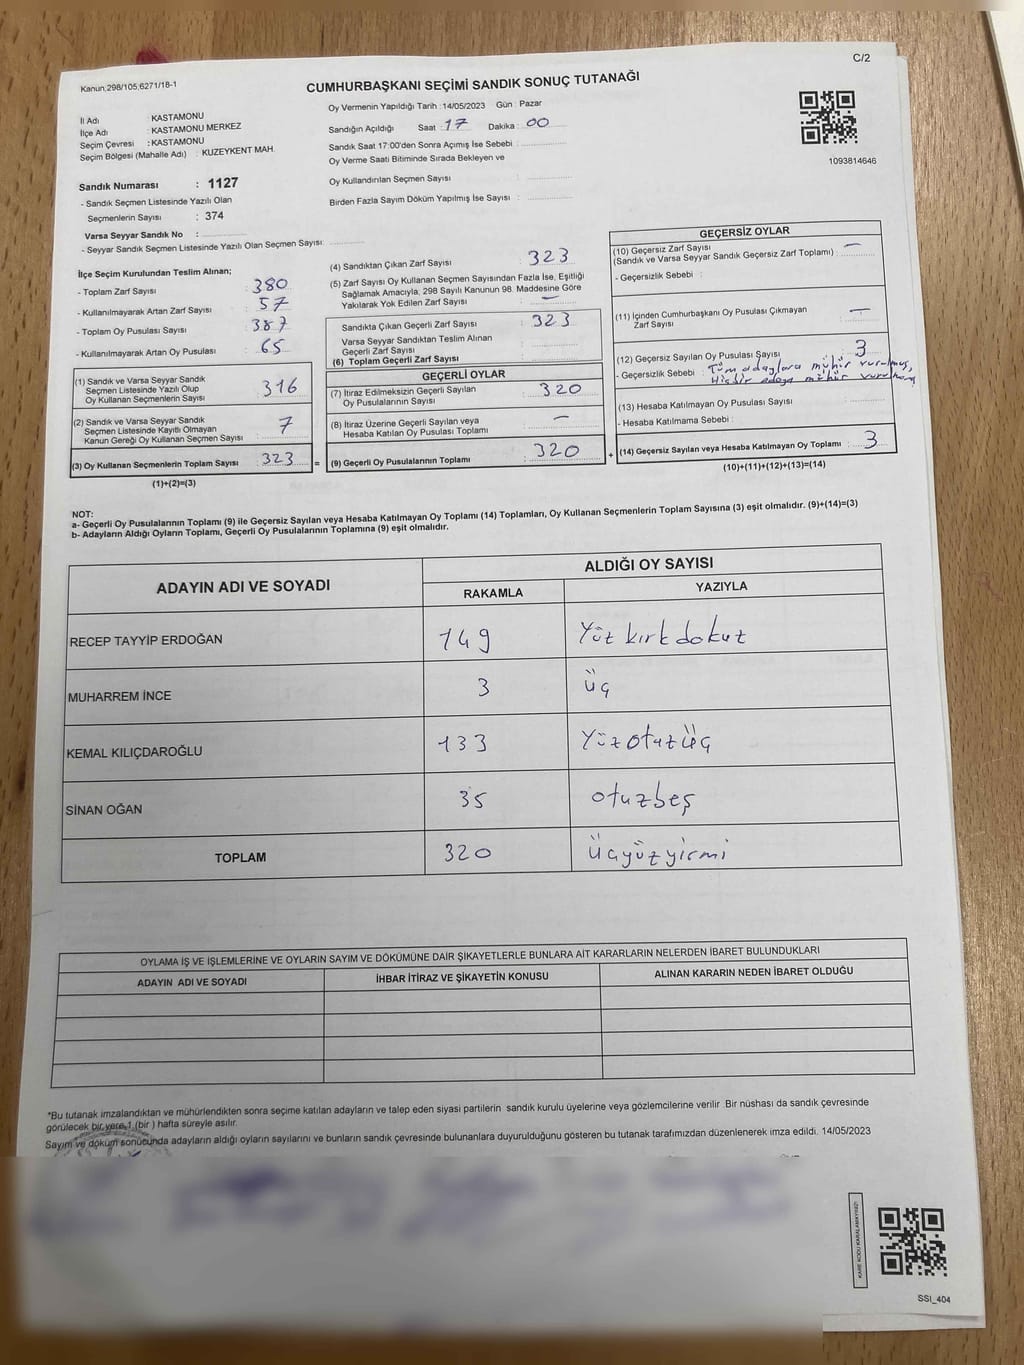 C/2
Kanun;298/105;6271/18-1
CUMHURBAŞKANI SEÇİMİ SANDIK SONUÇ TUTANAĞI
İl Adı : KASTAMONU
İlçe Adı : KASTAMONU MERKEZ
Seçim Çevresi : KASTAMONU
Seçim Bölgesi (Mahalle Adı) : KUZEYKENT MAH.
Oy Vermenin Yapıldığı Tarih :14/05/2023 Gün : Pazar
Sandığın Açıldığı Saat : 17 Dakika : 00
Sandık Saat 17:00'den Sonra Açımış İse Sebebi :
Oy Verme Saati Bitiminde Sırada Bekleyen ve
Oy Kullandırılan Seçmen Sayısı :
Birden Fazla Sayım Döküm Yapılmış İse Sayısı :
1093814646
Sandık Numarası : 1127
- Sandık Seçmen Listesinde Yazılı Olan
Seçmenlerin Sayısı : 374
Varsa Seyyar Sandık No :
- Seyyar Sandık Seçmen Listesinde Yazılı Olan Seçmen Sayısı:
İlçe Seçim Kurulundan Teslim Alınan;
- Toplam Zarf Sayısı : 380
- Kullanılmayarak Artan Zarf Sayısı : 57
- Toplam Oy Pusulası Sayısı : 387
- Kullanılmayarak Artan Oy Pusulası : 65
(1) Sandık ve Varsa Seyyar Sandık
Seçmen Listesinde Yazılı Olup
Oy Kullanan Seçmenlerin Sayısı : 316
(2) Sandık ve Varsa Seyyar Sandık
Seçmen Listesinde Kayıtlı Olmayan
Kanun Gereği Oy Kullanan Seçmen Sayısı : 7
(3) Oy Kullanan Seçmenlerin Toplam Sayısı : 323
(1)+(2)=(3)
(4) Sandıktan Çıkan Zarf Sayısı : 323
(5) Zarf Sayısı Oy Kullanan Seçmen Sayısından Fazla İse, Eşitliği
Sağlamak Amacıyla; 298 Sayılı Kanunun 98. Maddesine Göre
Yakılarak Yok Edilen Zarf Sayısı : —
Sandıkta Çıkan Geçerli Zarf Sayısı : 323
Varsa Seyyar Sandıktan Teslim Alınan
Geçerli Zarf Sayısı :
(6) Toplam Geçerli Zarf Sayısı :
GEÇERLİ OYLAR
(7) İtiraz Edilmeksizin Geçerli Sayılan
Oy Pusulalarının Sayısı : 320
(8) İtiraz Üzerine Geçerli Sayılan veya
Hesaba Katılan Oy Pusulası Toplamı : —
= (9) Geçerli Oy Pusulalarının Toplamı : 320
GEÇERSİZ OYLAR
(10) Geçersiz Zarf Sayısı
(Sandık ve Varsa Seyyar Sandık Geçersiz Zarf Toplamı) : —
- Geçersizlik Sebebi :
(11) İçinden Cumhurbaşkanı Oy Pusulası Çıkmayan
Zarf Sayısı : —
(12) Geçersiz Sayılan Oy Pusulası Sayısı : 3
- Geçersizlik Sebebi : Tüm adaylara mühür vurulmuş,
Hiçbir adaya mühür vurulmamış
(13) Hesaba Katılmayan Oy Pusulası Sayısı :
- Hesaba Katılmama Sebebi :
+ (14) Geçersiz Sayılan veya Hesaba Katılmayan Oy Toplamı : 3
(10)+(11)+(12)+(13)=(14)
NOT:
a- Geçerli Oy Pusulalarının Toplamı (9) ile Geçersiz Sayılan veya Hesaba Katılmayan Oy Toplamı (14) Toplamları, Oy Kullanan Seçmenlerin Toplam Sayısına (3) eşit olmalıdır. (9)+(14)=(3)
b- Adayların Aldığı Oyların Toplamı, Geçerli Oy Pusulalarının Toplamına (9) eşit olmalıdır.
ADAYIN ADI VE SOYADI
ALDIĞI OY SAYISI
RAKAMLA YAZIYLA
RECEP TAYYİP ERDOĞAN 149 Yüz kırk dokuz
MUHARREM İNCE 3 üç
KEMAL KILIÇDAROĞLU 133 Yüzotuzüç
SİNAN OĞAN 35 otuzbeş
TOPLAM 320 Üçyüzyirmi
OYLAMA İŞ VE İŞLEMLERİNE VE OYLARIN SAYIM VE DÖKÜMÜNE DAİR ŞİKAYETLERLE BUNLARA AİT KARARLARIN NELERDEN İBARET BULUNDUKLARI
ADAYIN ADI VE SOYADI İHBAR İTİRAZ VE ŞİKAYETİN KONUSU ALINAN KARARIN NEDEN İBARET OLDUĞU
*Bu tutanak imzalandıktan ve mühürlendikten sonra seçime katılan adayların ve talep eden siyasi partilerin sandık kurulu üyelerine veya gözlemcilerine verilir .Bir nüshası da sandık çevresinde
görülecek bir yere 1 (bir ) hafta süreyle asılır.
Sayım ve döküm sonucunda adayların aldığı oyların sayılarını ve bunların sandık çevresinde bulunanlara duyurulduğunu gösteren bu tutanak tarafımızdan düzenlenerek imza edildi. 14/05/2023
KARE KODU KARALAMAYINIZ!
SSI_404